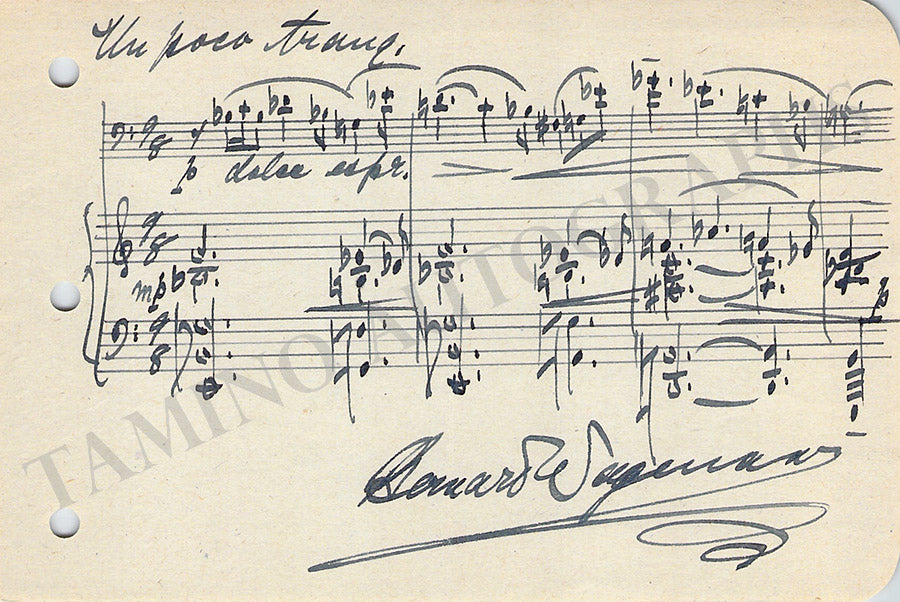 Un poco tranq.
9 8
p dolce espr.
9 8
mp
9 8
TAMINO AUTOGRAPHS
Bernard Wagenaar